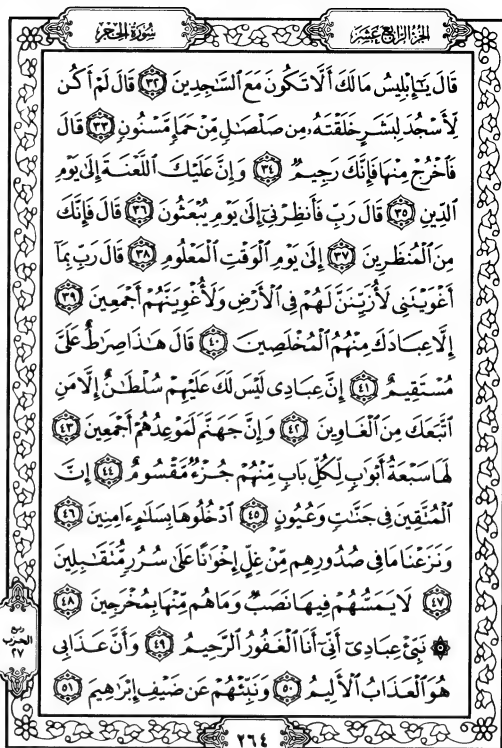 الجزء الرابع عشر
سورة الحجر
قَالَ يَٰٓإِبْلِيسُ مَا لَكَ أَلَّا تَكُونَ مَعَ ٱلسَّٰجِدِينَ ٣٢ قَالَ لَمْ أَكُن
لِّأَسْجُدَ لِبَشَرٍ خَلَقْتَهُۥ مِن صَلْصَٰلٍ مِّنْ حَمَإٍ مَّسْنُونٍ ٣٣ قَالَ
فَٱخْرُجْ مِنْهَا فَإِنَّكَ رَجِيمٌ ٣٤ وَإِنَّ عَلَيْكَ ٱللَّعْنَةَ إِلَىٰ يَوْمِ
ٱلدِّينِ ٣٥ قَالَ رَبِّ فَأَنظِرْنِىٓ إِلَىٰ يَوْمِ يُبْعَثُونَ ٣٦ قَالَ فَإِنَّكَ
مِنَ ٱلْمُنظَرِينَ ٣٧ إِلَىٰ يَوْمِ ٱلْوَقْتِ ٱلْمَعْلُومِ ٣٨ قَالَ رَبِّ بِمَآ
أَغْوَيْتَنِى لَأُزَيِّنَنَّ لَهُمْ فِى ٱلْأَرْضِ وَلَأُغْوِيَنَّهُمْ أَجْمَعِينَ ٣٩
إِلَّا عِبَادَكَ مِنْهُمُ ٱلْمُخْلَصِينَ ٤٠ قَالَ هَٰذَا صِرَٰطٌ عَلَىَّ
مُسْتَقِيمٌ ٤١ إِنَّ عِبَادِى لَيْسَ لَكَ عَلَيْهِمْ سُلْطَٰنٌ إِلَّا مَنِ
ٱتَّبَعَكَ مِنَ ٱلْغَاوِينَ ٤٢ وَإِنَّ جَهَنَّمَ لَمَوْعِدُهُمْ أَجْمَعِينَ ٤٣
لَهَا سَبْعَةُ أَبْوَٰبٍ لِّكُلِّ بَابٍ مِّنْهُمْ جُزْءٌ مَّقْسُومٌ ٤٤ إِنَّ
ٱلْمُتَّقِينَ فِى جَنَّٰتٍ وَعُيُونٍ ٤٥ ٱدْخُلُوهَا بِسَلَٰمٍ ءَامِنِينَ ٤٦
وَنَزَعْنَا مَا فِى صُدُورِهِم مِّنْ غِلٍّ إِخْوَٰنًا عَلَىٰ سُرُرٍ مُّتَقَٰبِلِينَ
٤٧ لَا يَمَسُّهُمْ فِيهَا نَصَبٌ وَمَا هُم مِّنْهَا بِمُخْرَجِينَ ٤٨
۞ نَبِّئْ عِبَادِىٓ أَنِّىٓ أَنَا ٱلْغَفُورُ ٱلرَّحِيمُ ٤٩ وَأَنَّ عَذَابِى
هُوَ ٱلْعَذَابُ ٱلْأَلِيمُ ٥٠ وَنَبِّئْهُمْ عَن ضَيْفِ إِبْرَٰهِيمَ ٥١
ربع
الحزب
٢٧
٢٦٤